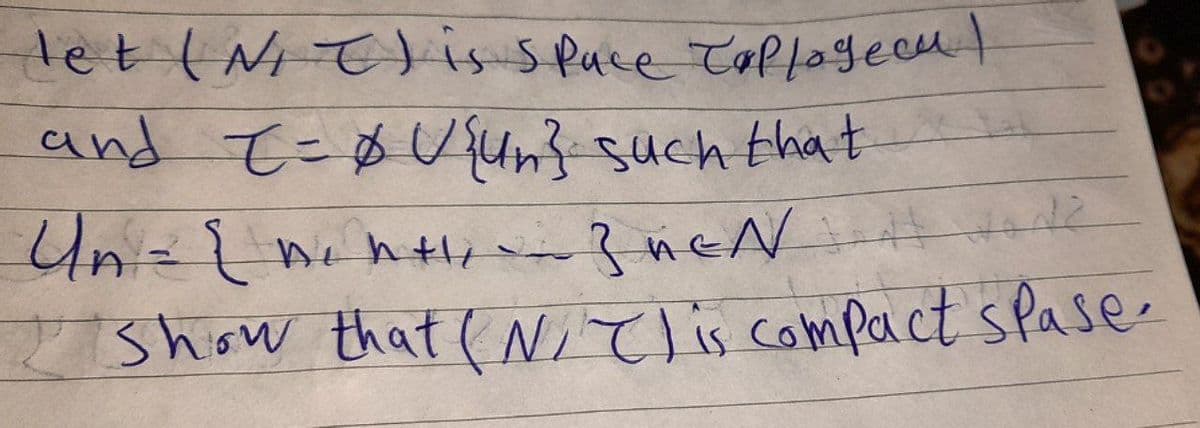 let (N, τ) is space Toplogecul
and τ = ø U {Un} such that
Un = { n, n+1, --- } n∈N
show that (N, τ) is compact spase.